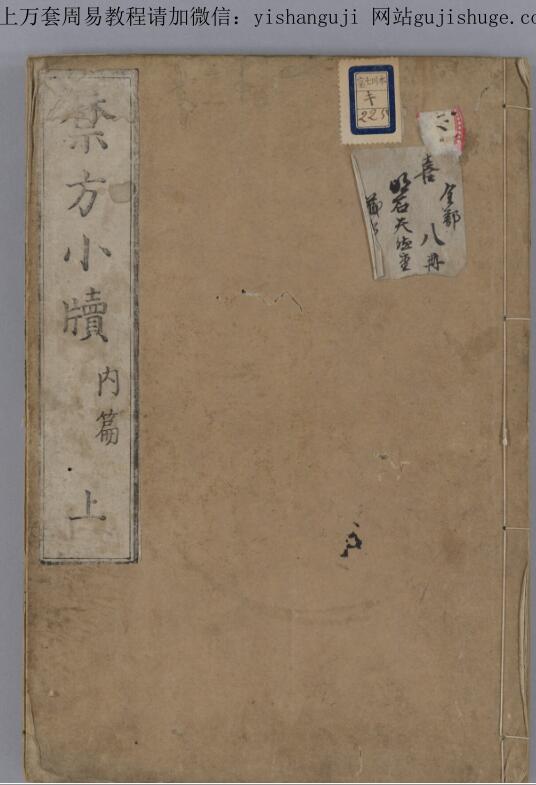 上万套周易教程请加微信：yishanguji 网站gujishuge.co
禁方小牘
内篇
上
キ
225
全部
八冊
喜
明石天